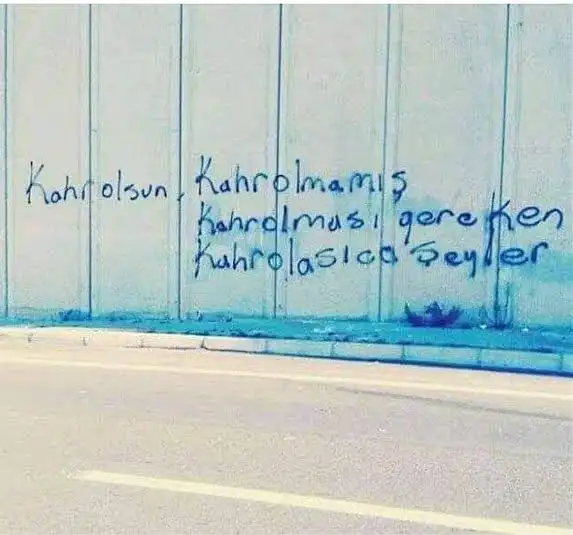 Kahrolsun, Kahrolmamış
Kahrolması gereken
Kahrolasıca şeyler